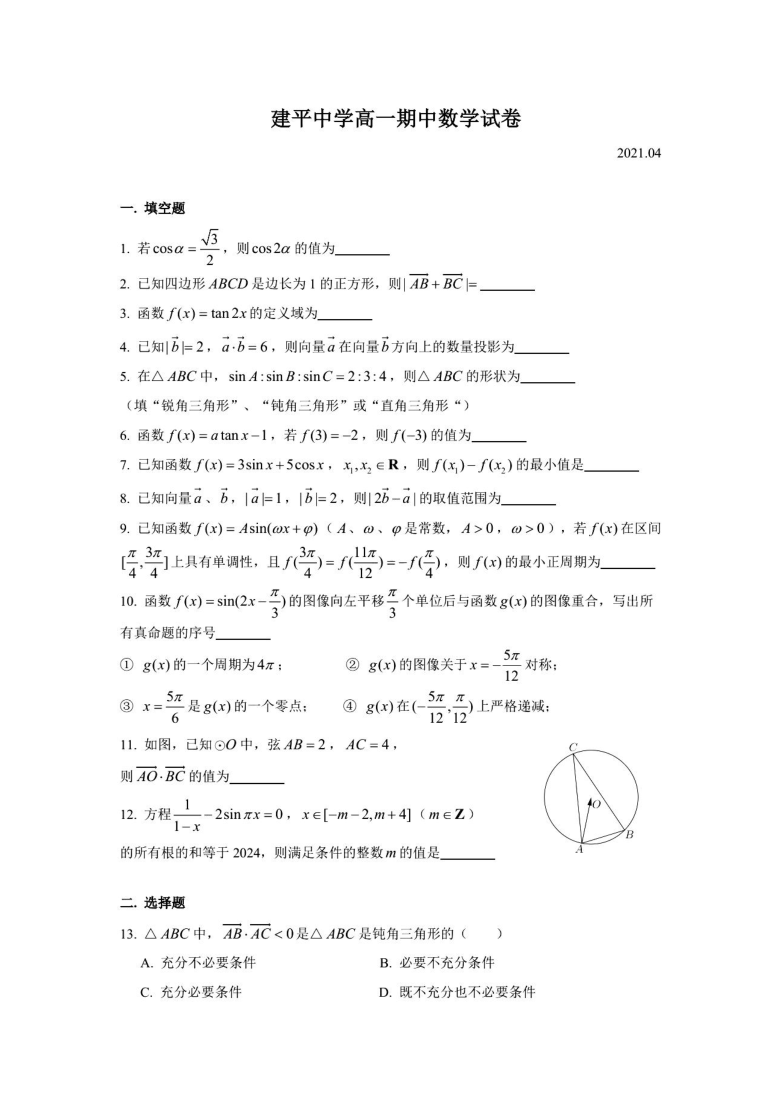 建平中学高一期中数学试卷
2021.04
一. 填空题
1. 若 cosα = √3/2，则 cos2α 的值为
2. 已知四边形 ABCD 是边长为 1 的正方形，则 |AB→ + BC→| =
3. 函数 f(x) = tan 2x 的定义域为
4. 已知 |b→| = 2，a→·b→ = 6，则向量 a→ 在向量 b→ 方向上的数量投影为
5. 在△ ABC 中，sin A : sin B : sin C = 2 : 3 : 4，则△ ABC 的形状为
（填“锐角三角形”、“钝角三角形”或“直角三角形“）
6. 函数 f(x) = a tan x − 1，若 f(3) = −2，则 f(−3) 的值为
7. 已知函数 f(x) = 3sin x + 5cos x，x₁, x₂ ∈ R，则 f(x₁) − f(x₂) 的最小值是
8. 已知向量 a→、b→，|a→| = 1，|b→| = 2，则 |2b→ − a→| 的取值范围为
9. 已知函数 f(x) = Asin(ωx + φ)（ A、ω、φ 是常数，A > 0，ω > 0），若 f(x) 在区间
[π/4, 3π/4] 上具有单调性，且 f(3π/4) = f(11π/12) = −f(π/4)，则 f(x) 的最小正周期为
10. 函数 f(x) = sin(2x − π/3) 的图像向左平移 π/3 个单位后与函数 g(x) 的图像重合，写出所
有真命题的序号
① g(x) 的一个周期为 4π； ② g(x) 的图像关于 x = −5π/12 对称；
③ x = 5π/6 是 g(x) 的一个零点； ④ g(x) 在 (−5π/12, π/12) 上严格递减；
11. 如图，已知⊙O 中，弦 AB = 2，AC = 4，
则 AO→·BC→ 的值为
C
O
B
A
12. 方程 1/(1−x) − 2sin πx = 0，x ∈ [−m − 2, m + 4]（ m ∈ Z ）
的所有根的和等于 2024，则满足条件的整数 m 的值是
二. 选择题
13. △ ABC 中，AB→·AC→ < 0 是△ ABC 是钝角三角形的（ ）
A. 充分不必要条件 B. 必要不充分条件
C. 充分必要条件 D. 既不充分也不必要条件